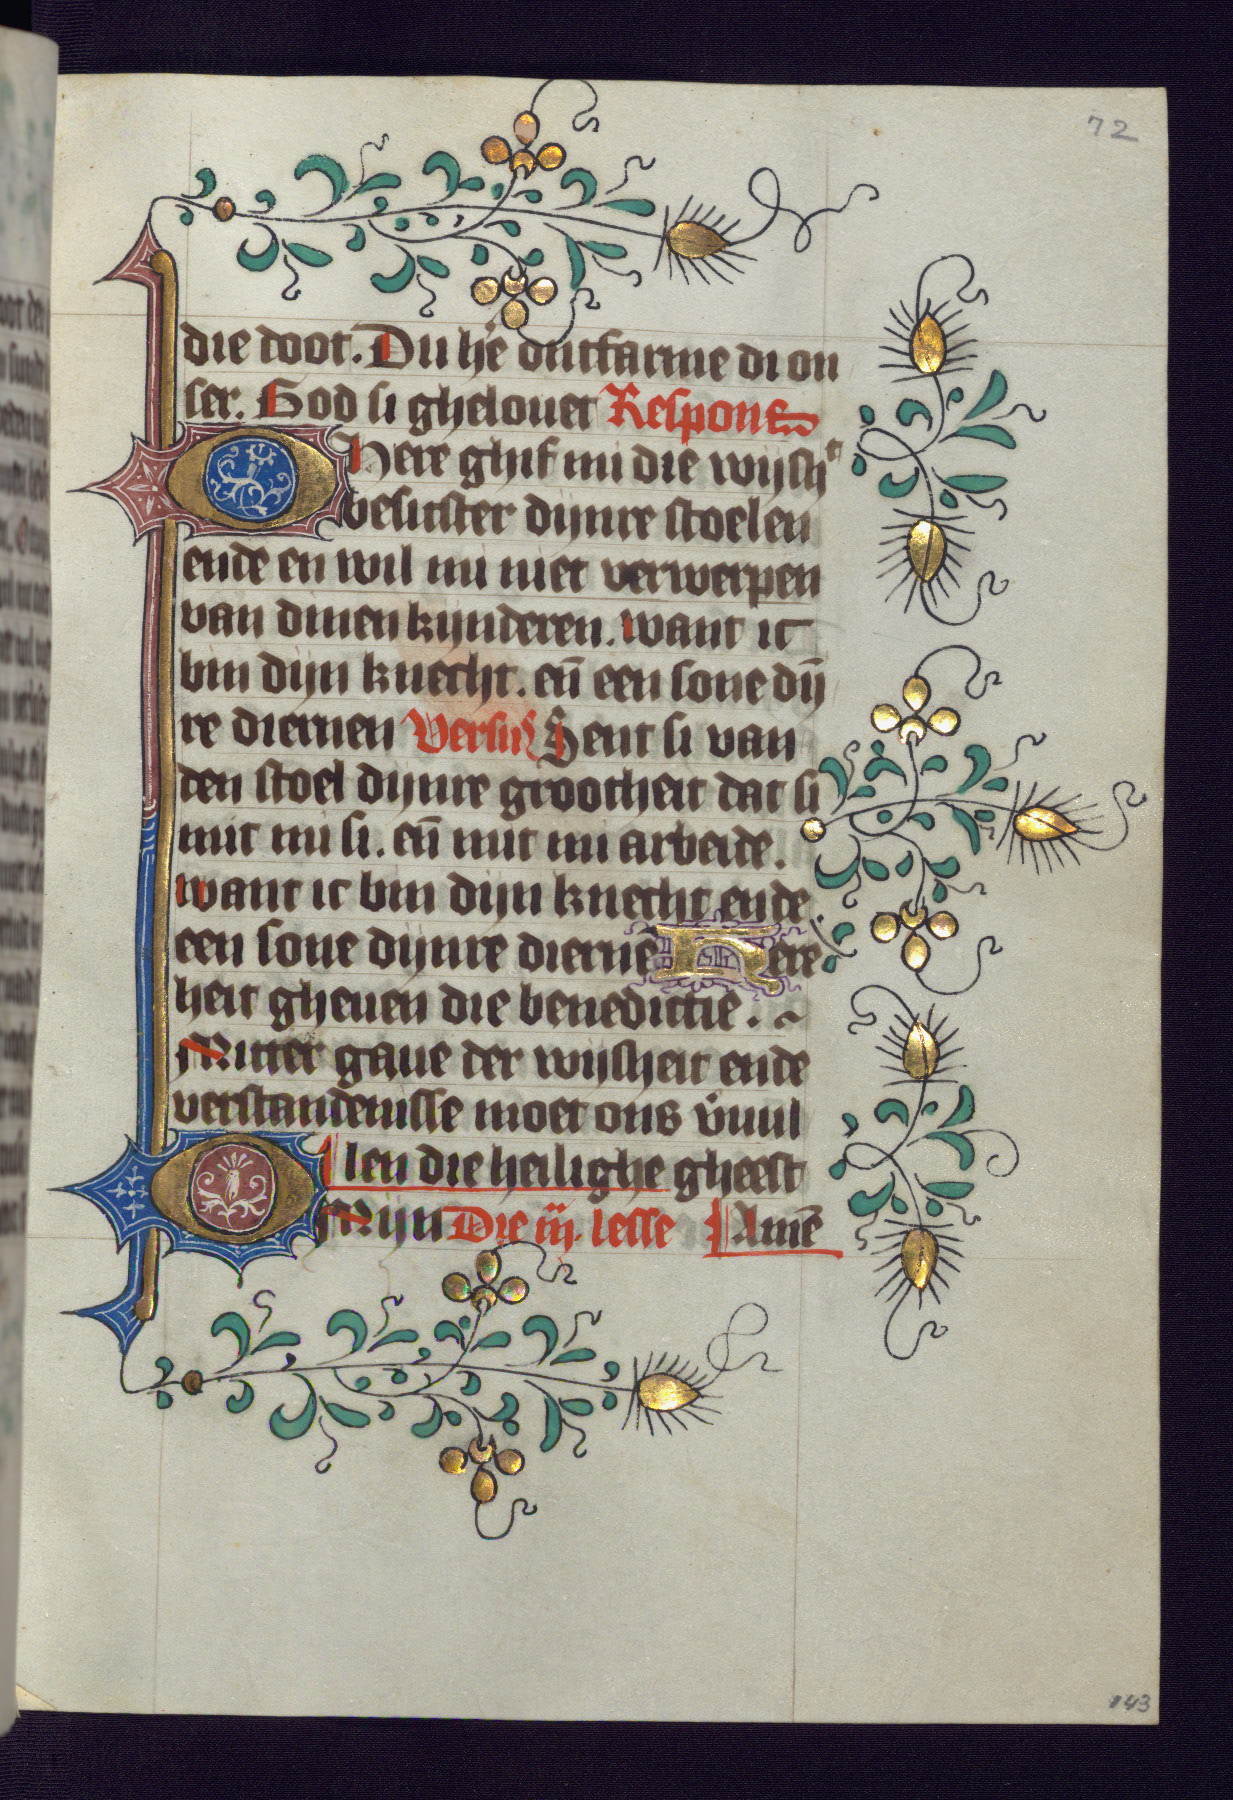 72
die doot. Du hē ontfarme di on
ser. God si ghelovet Respons
O Here ghif mi die wijsh't
besitster dijnre stoelen
ende en wil mi niet verwerpen
van dinen kijnderen. want ic
bin dijn knecht. eñ een sone dij̄
re diernen Versus Sent si van
den stoel dijnre grootheit dat si
mit mi si. eñ mit mi arbeide.
want ic bin dijn knecht ende
een sone dijnre diernē Here
heit gheven die benedictie.
Mitter gave der wijsheit ende
verstandenisse moet ons v̇vul
len die heilighe gheest
O Mijn Die iij. lesse Amē
143